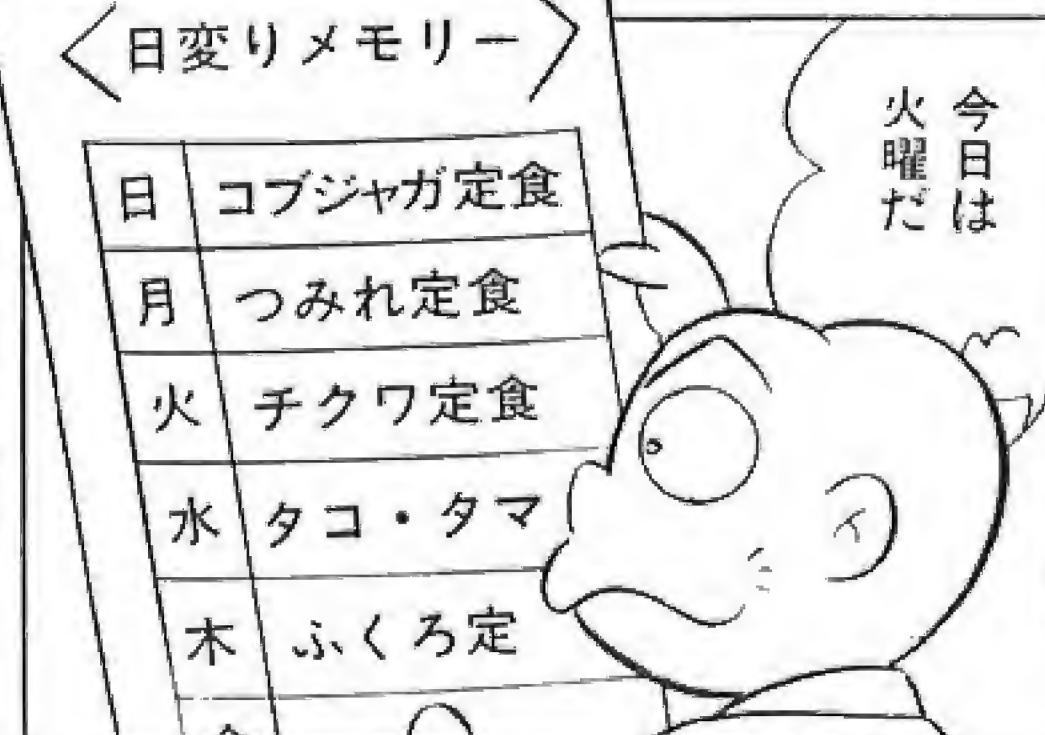 〈日変りメモリー〉
日 コブジャガ定食
月 つみれ定食
火 チクワ定食
水 タコ・タマ
木 ふくろ定
今日は
火曜だ